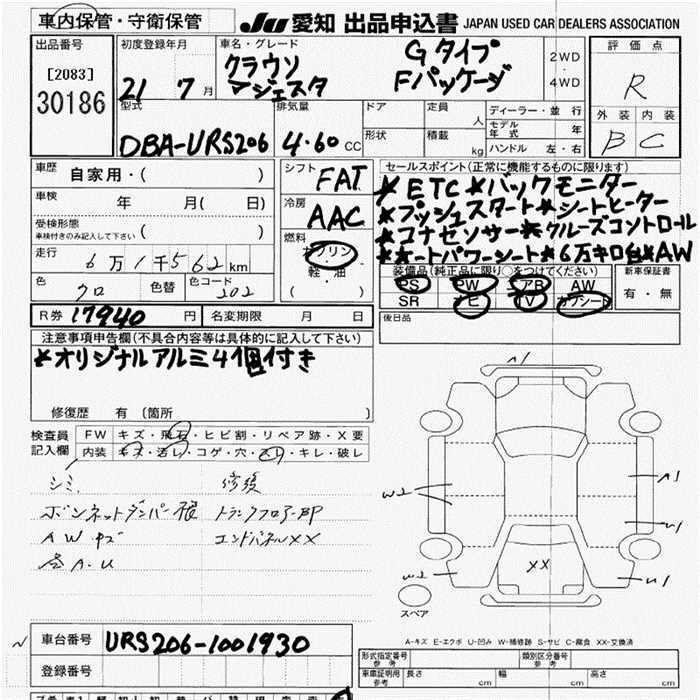 車内保管・守衛保管
JU 愛知 出品申込書 JAPAN USED CAR DEALERS ASSOCIATION
出品番号
[2083]
30186
初度登録年月
21 7 月
車名・グレード
クラウン
マジェスタ
Gタイプ
Fパッケージ
2WD
・
4WD
評価点
R
外装 内装
B C
型式
DBA-URS206
排気量
4.60 CC
ドア
定員 人
形状
積載 kg
ディーラー・並行
モデル年式 年
ハンドル 左・右
車歴
自家用・( )
車検
年 月( 日)
受検形態
車検付きのみ記入して下さい ( )
走行
6万1千562km
色
クロ
色替
色コード
202
シフト
FAT
冷房
AAC
燃料
ガソリン
軽・油
( )
セールスポイント(正常に機能するものに限ります)
★ETC★バックモニター
★プッシュスタート★シートヒーター
★コナセンサー★クルーズコントロール
★オートパワーシート★6万キロ台★AW
装備品(純正品に限り○をつけてください)
PS PW AB AW
SR ナビ TV カワシート
新車保証書
有・無
後日品
R券 17940 円
名変期限 月 日
注意事項申告欄(不具合内容等は具体的に記入して下さい)
★オリジナルアルミ4個付き
修復歴 有 (箇所 )
検査員
記入欄
FW キズ・飛石・ヒビ割・リペア跡・X要
内装 キズ・汚レ・コゲ・穴・スレ・キレ・破レ
シミ 修復
ボンネットダンパー損 トランクフロアーBP
AWキズ エンドパネルXX
A.U
A1
W2
A1
U1
W2
XX
U1
スペア
A-キズ E-エクボ U-凹み W-補修跡 S-サビ C-腐食 XX-交換済
車台番号 URS206-1001930
登録番号
形式指定番号
参考
類別区分番号
参考
車庫証明用
参考
長さ cm
幅 cm
高さ cm